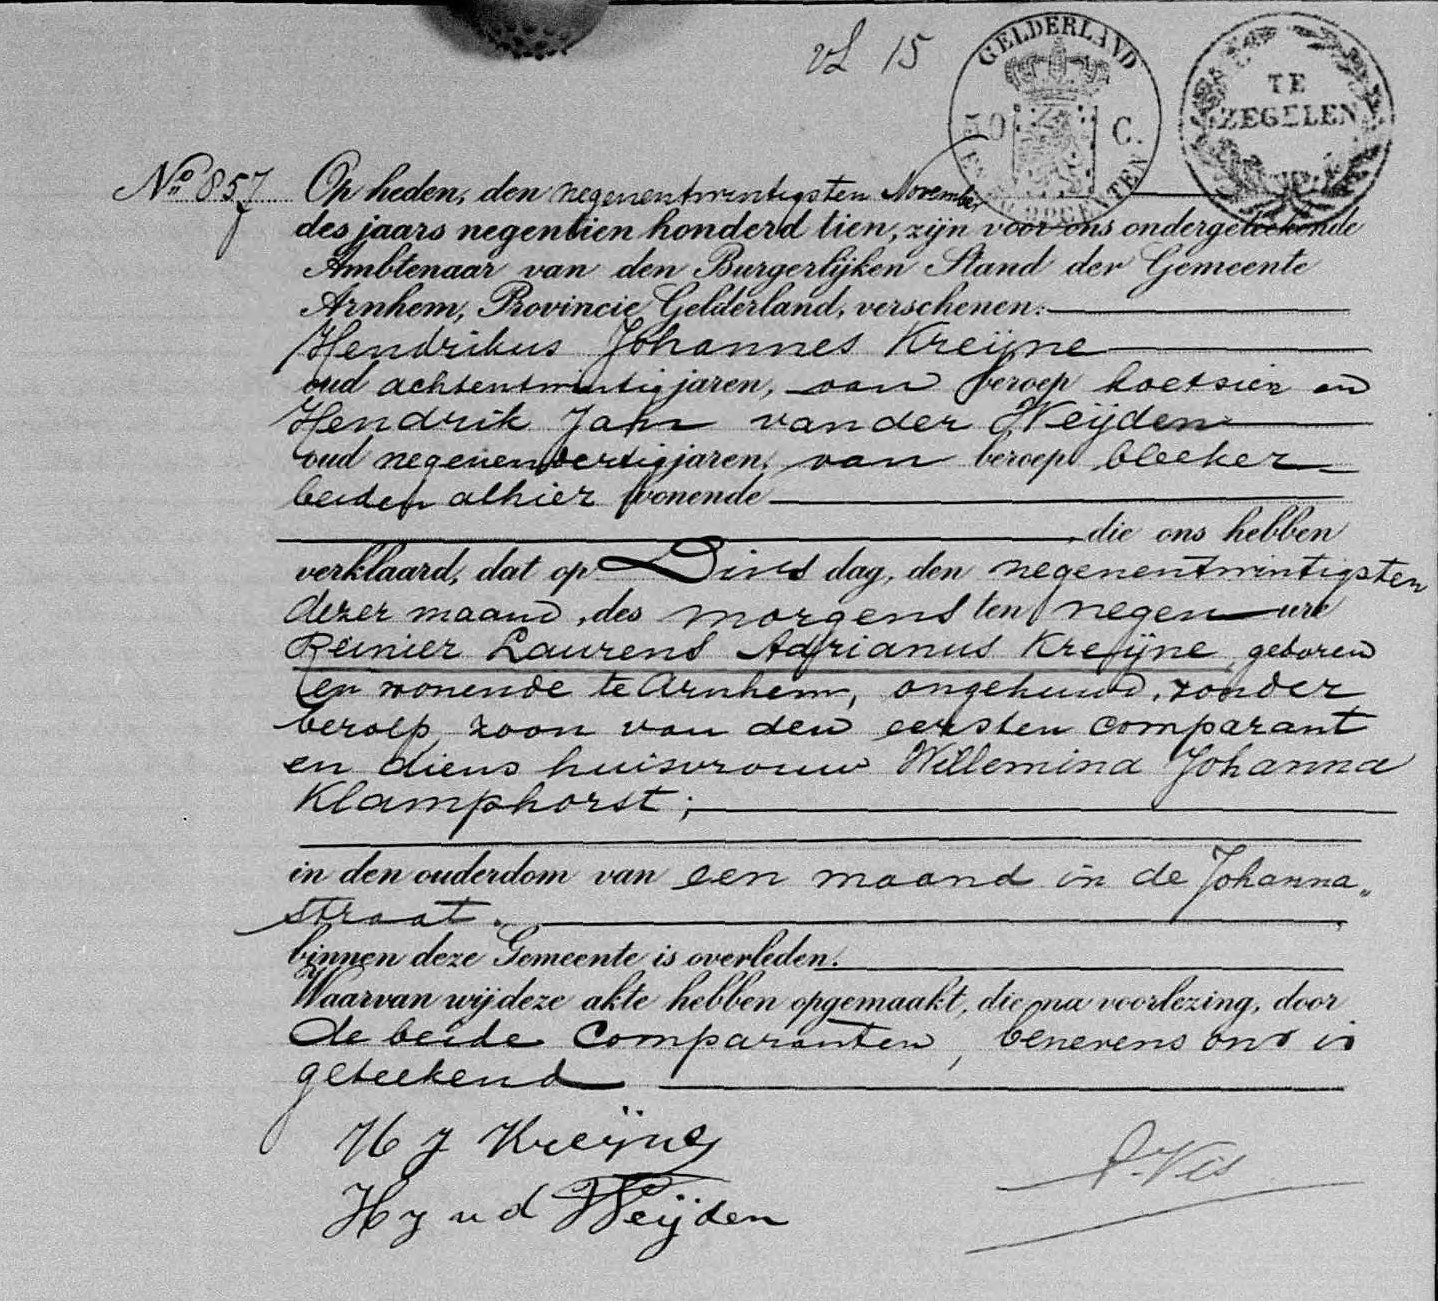 vL 15
GELDERLAND
50 C.
TE
ZEGELEN
No. 857 Op heden, den negenentwintigsten November
des jaars negentien honderd tien, zijn voor ons ondergeteekende
Ambtenaar van den Burgerlijken Stand der Gemeente
Arnhem, Provincie Gelderland, verschenen:
Hendrikus Johannes Kreijne
oud achtentwintig jaren, van beroep koetsier en
Hendrik Jan van der Weijden
oud negenendertig jaren, van beroep bleeker
beiden alhier wonende
die ons hebben
verklaard, dat op Dins dag, den negenentwintigsten
dezer maand, des morgens ten negen ure
Reinier Laurens Adrianus Kreijne, geboren
en wonende te Arnhem, ongehuwd, zonder
beroep, zoon van den eersten comparant
en diens huisvrouw Willemina Johanna
Klamphorst;
in den ouderdom van een maand in de Johanna„
straat.
binnen deze Gemeente is overleden.
Waarvan wij deze akte hebben opgemaakt, die na voorlezing, door
de beide comparanten, benevens ons is
geteekend
H J Kreijne
H J v d Weijden